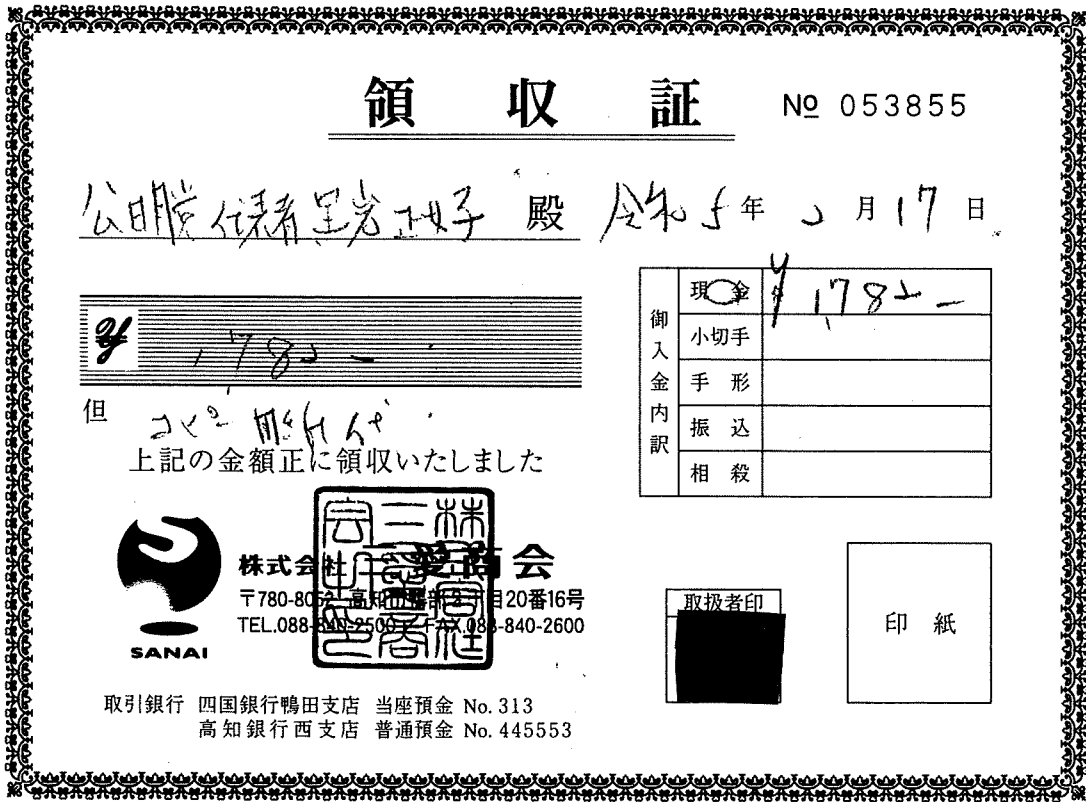 領収証 № 053855
公明党 代表者 黒岩正好 殿
令和5年 月17日
¥ 1,782 —
但 コピー用紙代
上記の金額正に領収いたしました
御入金内訳
現金 ¥ 1,782 —
小切手
手形
振込
相殺
株式会社三愛商会
〒780-805 高知市鴨部2丁目20番16号
TEL.088-840-2500 FAX.088-840-2600
SANAI
取扱者印
印紙
取引銀行 四国銀行鴨田支店 当座預金 No. 313
高知銀行西支店 普通預金 No. 445553